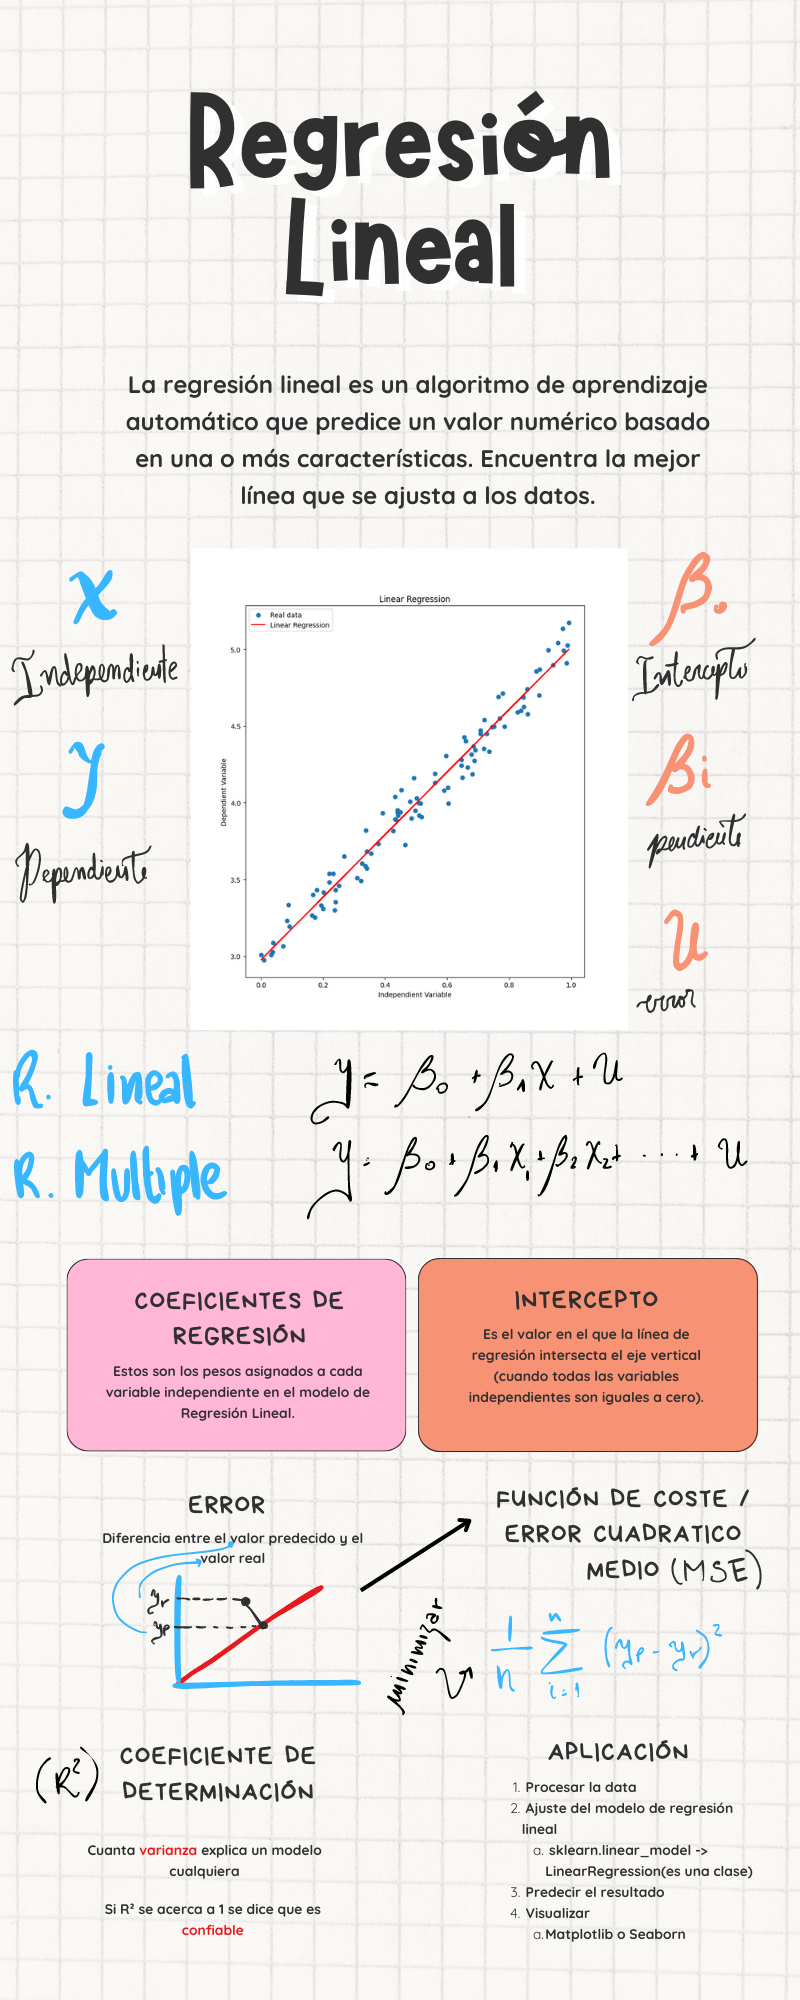 Regresión
Lineal
La regresión lineal es un algoritmo de aprendizaje
automático que predice un valor numérico basado
en una o más características. Encuentra la mejor
línea que se ajusta a los datos.
x
Independiente
y
Dependiente
Linear Regression
Real data
Linear Regression
5.0
4.5
4.0
3.5
3.0
Dependent Variable
0.0 0.2 0.4 0.6 0.8 1.0
Independent Variable
β.
Intercepto
βi
pendiente
u
error
R. Lineal
y = β₀ + β₁x + u
R. Multiple
y = β₀ + β₁x₁ + β₂x₂ + ···· + u
COEFICIENTES DE
REGRESIÓN
Estos son los pesos asignados a cada
variable independiente en el modelo de
Regresión Lineal.
INTERCEPTO
Es el valor en el que la línea de
regresión intersecta el eje vertical
(cuando todas las variables
independientes son iguales a cero).
ERROR
Diferencia entre el valor predecido y el
valor real
yr
yp
FUNCIÓN DE COSTE /
ERROR CUADRATICO
MEDIO (MSE)
minimizar
1/n Σ n i=1 (yp - yr)²
(R²)
COEFICIENTE DE
DETERMINACIÓN
Cuanta varianza explica un modelo
cualquiera
Si R² se acerca a 1 se dice que es
confiable
APLICACIÓN
1. Procesar la data
2. Ajuste del modelo de regresión
lineal
a. sklearn.linear_model ->
LinearRegression(es una clase)
3. Predecir el resultado
4. Visualizar
a. Matplotlib o Seaborn